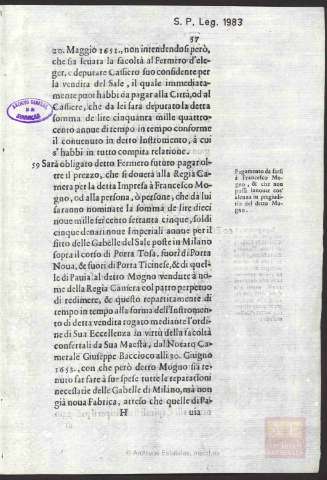 S. P. Leg. 1983
57
20. Maggio 1651., non intendendosi però,
che sia leuata la facoltà al Fermiero d'ele-
ger, e deputare Cassiero suo confidente per
la vendita del Sale, il quale immediata-
mente puoi habbi da pagar alla Città, od al
Cassiere, che da lei sarà deputato la detta
somma de lire cinquanta mille quattro-
cento annue di tempo in tempo conforme
il conuenuto in detto Instromento, à cui
s'habbi in tutto compita relatione.
59 Sarà obligato detto Fermero futuro pagar, ol-
tre il prezzo, che si douerà alla Regia Ca-
mera per la detta Impresa à Francesco Mo-
gno, od alla persona, ò persone, che da lui
saranno nominate la somma de lire dieci
noue mille sei cento settanta cinque, soldi
cinque denari noue Imperiali annue per il
fitto delle Gabelle del Sale poste in Milano
sopra il corso di Porta Tosa, fuori di Porta
Noua, & fuori di Porta Ticinese, & di quel-
le di Pauia al detto Mogno vendute à no-
me della Regia Camera col patto perpetuo
di redimere, & questo repartitamente di
tempo in tempo alla forma dell'Instromen-
to di detta vendita rogato mediante l'ordi-
ne di Sua Eccellenza in virtù della facoltà
conferta li da Sua Maestà, dal Notaro Ca-
merale Giuseppe Baccioco alli 30. Giugno
1653., con che però detto Mogno sia te-
nuto far fare à sue spese tutte le reparationi
necessarie delle Gabelle di Milano, mà non
già noua Fabrica, atteso che quelle di Pa-
H uia
Pagamento da farsi
à Francesco Mo-
gno, & che non
possi
del detto Mo-
gno.
© Archivos Estatales, mecd.es